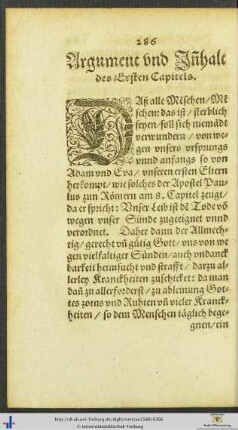 286
Argument vnd Jn̄halt
des Ersten Capitels.
DAß alle Mēschen/ Mē
schen: das ist/ sterblich
seyen/ soll sich niemādt
verwundern/ von we-
gen vnsers vrsprungs
vnnd anfangs so von
Adam vnd Eva/ vnseren ersten Eltern
herkompt/ wie solches der Apostel Pau-
lus zun Römern am 8. Capitel zeugt/
da er spricht: Vnser Leib ist dē Tode vō
wegen vnser Sünde zugeeignet vnnd
verordnet. Daher dann der Allmech-
tig/ gerecht vn̄ gütig Gott/ vns von we
gen vielfaltiger Sünden/ auch vndanck
barkeit heimsucht vnd strafft/ darzu al-
lerley Kranckheiten zuschicket: da man
dañ zu allerforderst/ zu ableinung Got-
tes zorns vnd Ruhten vn̄ vieler Kranck-
heiten/ so dem Menschen täglich bege-
gnen/ ein
© Universitätsbibliothek Freiburg